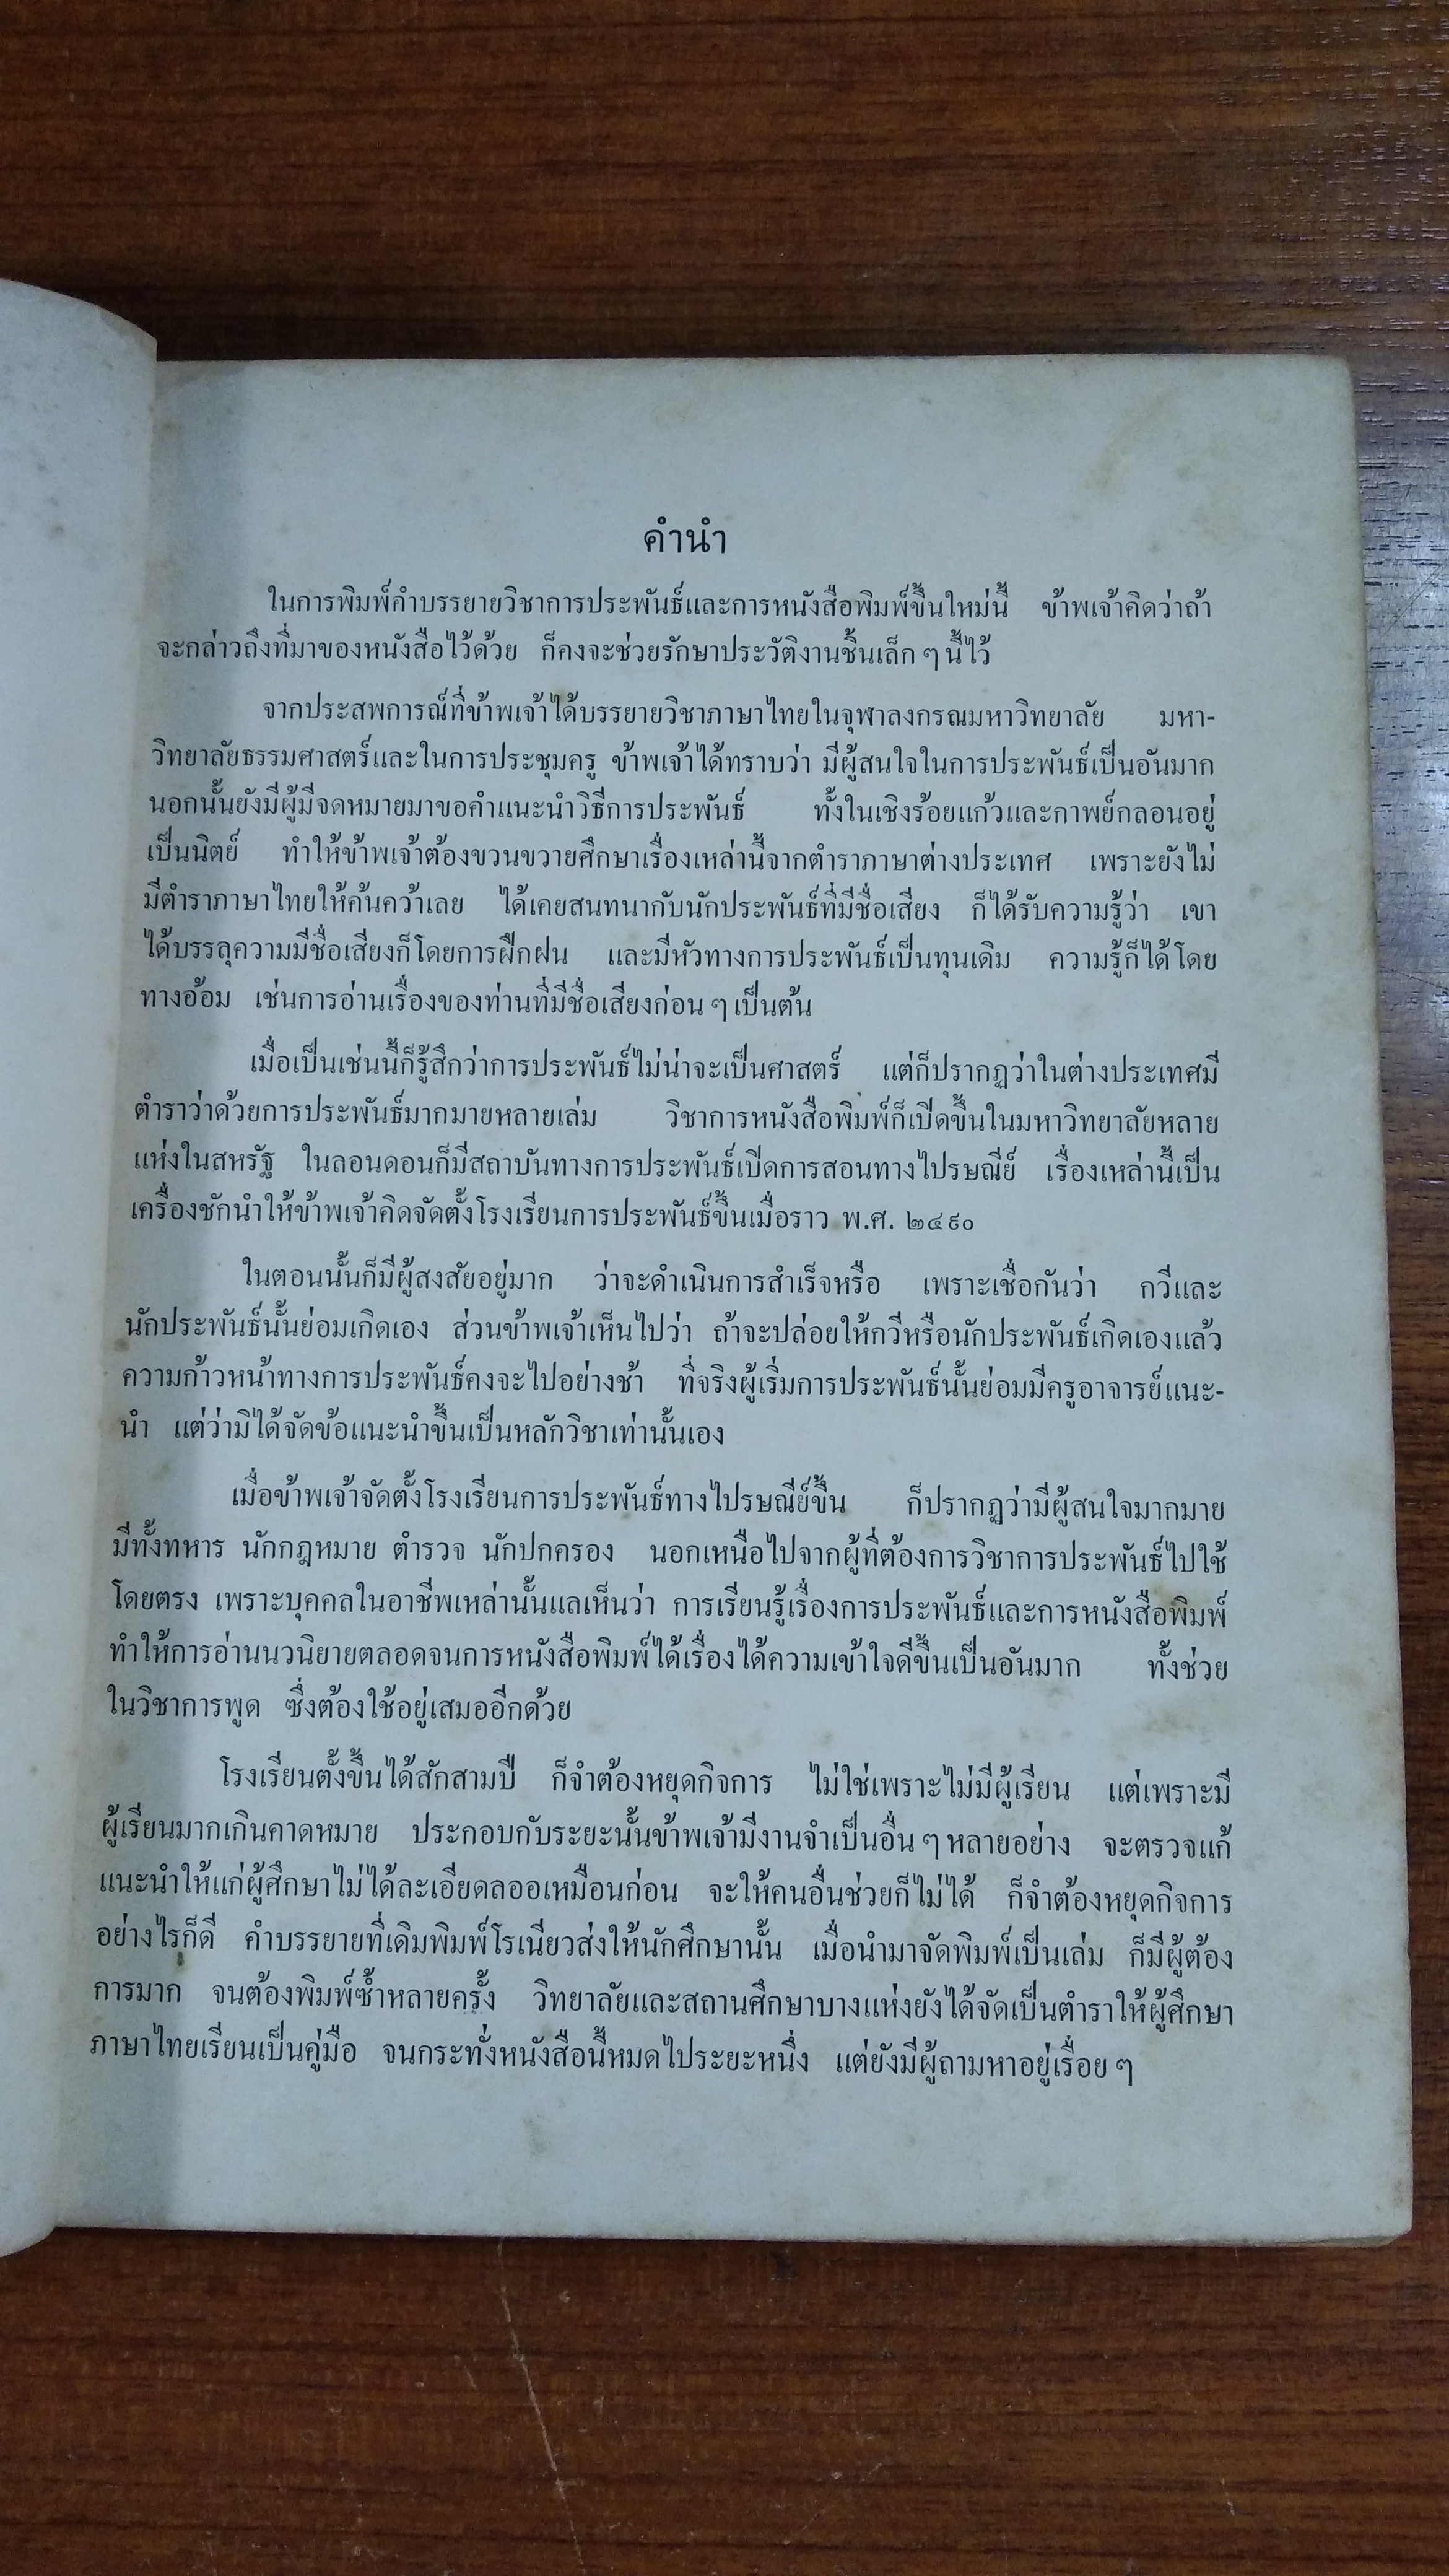 คำนำ
ในการพิมพ์คำบรรยายวิชาการประพันธ์และการหนังสือพิมพ์ขึ้นใหม่นี้ ข้าพเจ้าคิดว่าถ้า
จะกล่าวถึงที่มาของหนังสือไว้ด้วย ก็คงจะช่วยรักษาประวัติงานชิ้นเล็ก ๆ นี้ไว้
จากประสพการณ์ที่ข้าพเจ้าได้บรรยายวิชาภาษาไทยในจุฬาลงกรณมหาวิทยาลัย มหา-
วิทยาลัยธรรมศาสตร์และในการประชุมครู ข้าพเจ้าได้ทราบว่า มีผู้สนใจในการประพันธ์เป็นอันมาก
นอกนั้นยังมีผู้มีจดหมายมาขอคำแนะนำวิธีการประพันธ์ ทั้งในเชิงร้อยแก้วและกาพย์กลอนอยู่
เป็นนิตย์ ทำให้ข้าพเจ้าต้องขวนขวายศึกษาเรื่องเหล่านี้จากตำราภาษาต่างประเทศ เพราะยังไม่
มีตำราภาษาไทยให้ค้นคว้าเลย ได้เคยสนทนากับนักประพันธ์ที่มีชื่อเสียง ก็ได้รับความรู้ว่า เขา
ได้บรรลุความมีชื่อเสียงก็โดยการฝึกฝน และมีหัวทางการประพันธ์เป็นทุนเดิม ความรู้ก็ได้โดย
ทางอ้อม เช่นการอ่านเรื่องของท่านที่มีชื่อเสียงก่อน ๆ เป็นต้น
เมื่อเป็นเช่นนี้ก็รู้สึกว่าการประพันธ์ไม่น่าจะเป็นศาสตร์ แต่ก็ปรากฏว่าในต่างประเทศมี
ตำราว่าด้วยการประพันธ์มากมายหลายเล่ม วิชาการหนังสือพิมพ์ก็เปิดขึ้นในมหาวิทยาลัยหลาย
แห่งในสหรัฐ ในลอนดอนก็มีสถาบันทางการประพันธ์เปิดการสอนทางไปรษณีย์ เรื่องเหล่านี้เป็น
เครื่องชักนำให้ข้าพเจ้าคิดจัดตั้งโรงเรียนการประพันธ์ขึ้นเมื่อราว พ.ศ. ๒๔๙๐
ในตอนนั้นก็มีผู้สงสัยอยู่มาก ว่าจะดำเนินการสำเร็จหรือ เพราะเชื่อกันว่า กวีและ
นักประพันธ์นั้นย่อมเกิดเอง ส่วนข้าพเจ้าเห็นไปว่า ถ้าจะปล่อยให้กวีหรือนักประพันธ์เกิดเองแล้ว
ความก้าวหน้าทางการประพันธ์คงจะไปอย่างช้า ที่จริงผู้เริ่มการประพันธ์นั้นย่อมมีครูอาจารย์แนะ-
นำ แต่ว่ามิได้จัดข้อแนะนำขึ้นเป็นหลักวิชาเท่านั้นเอง
เมื่อข้าพเจ้าจัดตั้งโรงเรียนการประพันธ์ทางไปรษณีย์ขึ้น ก็ปรากฏว่ามีผู้สนใจมากมาย
มีทั้งทหาร นักกฎหมาย ตำรวจ นักปกครอง นอกเหนือไปจากผู้ที่ต้องการวิชาการประพันธ์ไปใช้
โดยตรง เพราะบุคคลในอาชีพเหล่านั้นแลเห็นว่า การเรียนรู้เรื่องการประพันธ์และการหนังสือพิมพ์
ทำให้การอ่านนวนิยายตลอดจนการหนังสือพิมพ์ได้เรื่องได้ความเข้าใจดีขึ้นเป็นอันมาก ทั้งช่วย
ในวิชาการพูด ซึ่งต้องใช้อยู่เสมออีกด้วย
โรงเรียนตั้งขึ้นได้สักสามปี ก็จำต้องหยุดกิจการ ไม่ใช่เพราะไม่มีผู้เรียน แต่เพราะมี
ผู้เรียนมากเกินคาดหมาย ประกอบกับระยะนั้นข้าพเจ้ามีงานจำเป็นอื่น ๆ หลายอย่าง จะตรวจแก้
แนะนำให้แก่ผู้ศึกษาไม่ได้ละเอียดลออเหมือนก่อน จะให้คนอื่นช่วยก็ไม่ได้ ก็จำต้องหยุดกิจการ
อย่างไรก็ดี คำบรรยายที่เดิมพิมพ์โรเนียวส่งให้นักศึกษานั้น เมื่อนำมาจัดพิมพ์เป็นเล่ม ก็มีผู้ต้อง
การมาก จนต้องพิมพ์ซ้ำหลายครั้ง วิทยาลัยและสถานศึกษาบางแห่งยังได้จัดเป็นตำราให้ผู้ศึกษา
ภาษาไทยเรียนเป็นคู่มือ จนกระทั่งหนังสือนี้หมดไประยะหนึ่ง แต่ยังมีผู้ถามหาอยู่เรื่อย ๆ